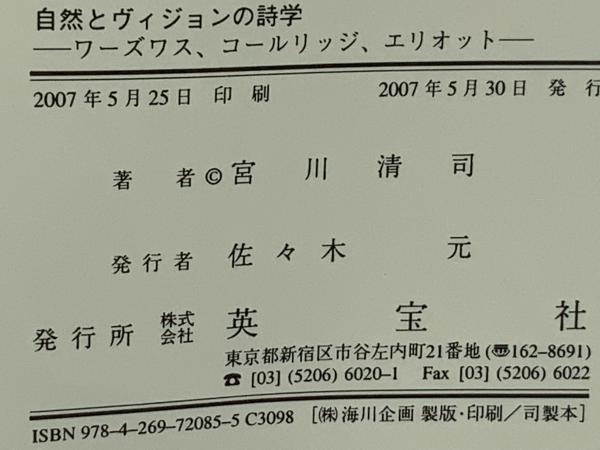 自然とヴィジョンの詩学
――ワーズワス、コールリッジ、エリオット――
2007年5月25日 印刷 2007年5月30日 発行
著者 © 宮川清司
発行者 佐々木元
発行所 株式会社 英宝社
東京都新宿区市谷左内町21番地(〠162–8691)
☎ [03] (5206) 6020–1 Fax [03] (5206) 6022
ISBN 978–4–269–72085–5 C3098 [㈱海川企画 製版・印刷/司製本]